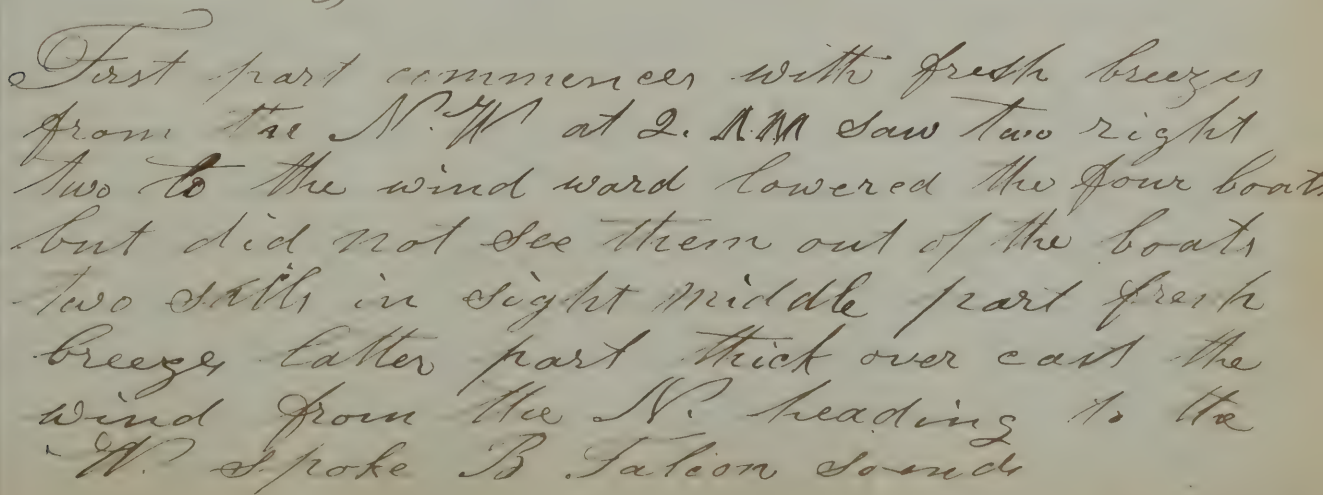 First part commences with fresh breezes
from the N.W at 2. AM saw two right
two to the wind ward lowered the four boats
but did not see them out of the boats
two sails in sight middle part fresh
breezes latter part thick over cast the
wind from the N. heading to the
W. spoke B Falcon